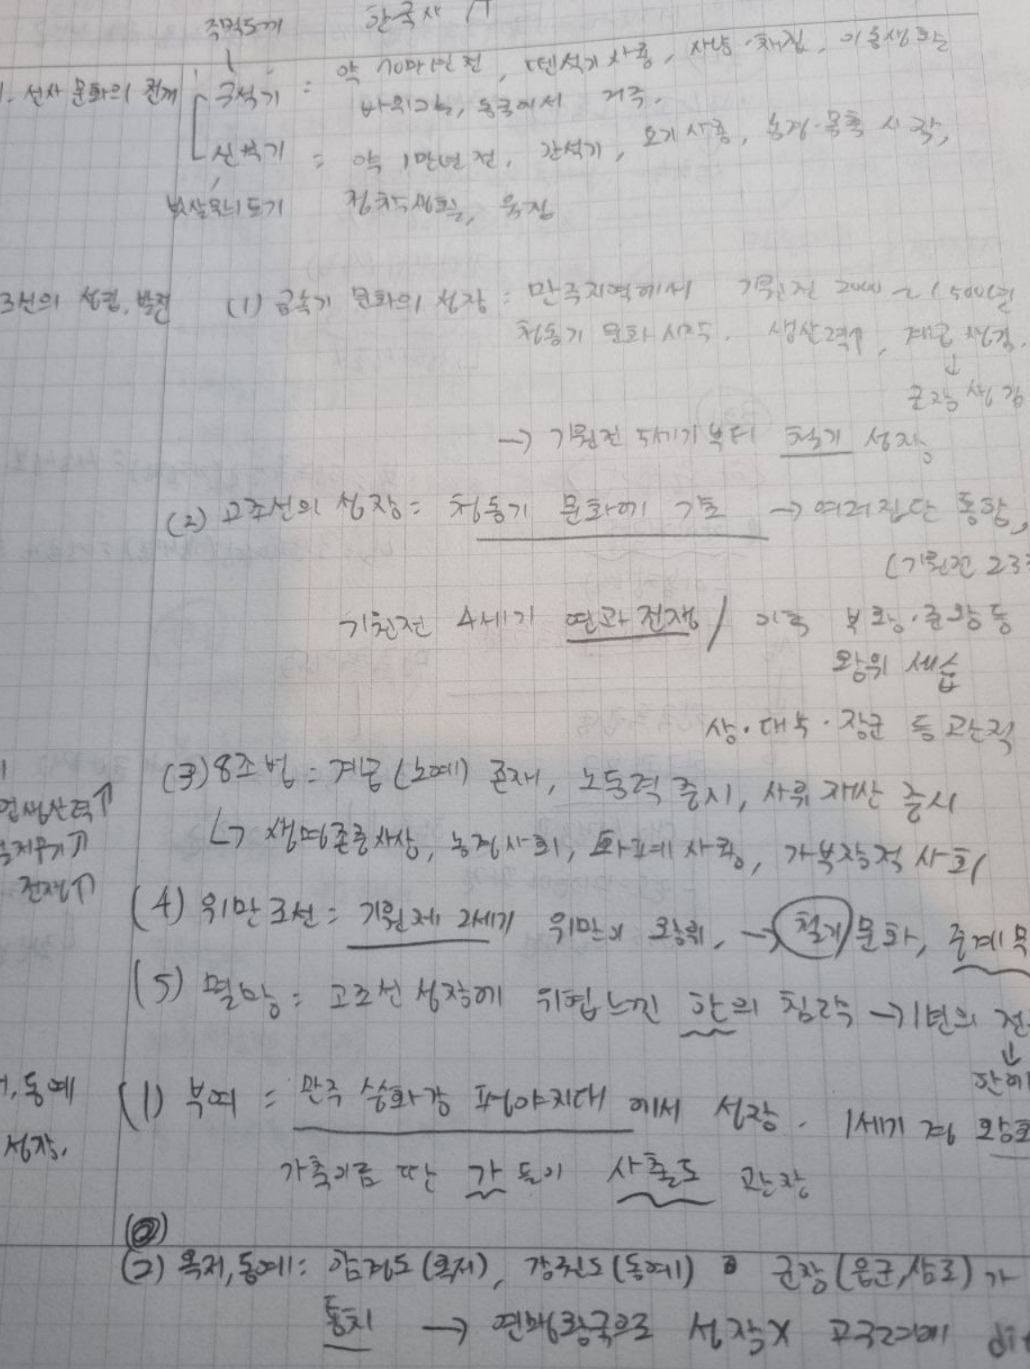 주먹도끼 한국사
1. 선사 문화의 전개 구석기 : 약 70만년 전, 뗀석기 사용, 사냥·채집, 이동생활
바위그늘, 동굴에서 거주.
신석기 = 약 1만년 전, 간석기, 토기 사용, 농경·목축 시작,
빗살무늬 토기 정착생활, 움집
조선의 성립, 발전 (1) 금속기 문화의 성장 : 만주지역에서 기원전 2000~1500년
청동기 문화 시작. 생산력↑, 계급 생김.
↓
군장 생김
→ 기원전 5세기부터 철기 성장
(2) 고조선의 성장 = 청동기 문화에 기초 → 여러집단 통합,
(기원전 233
기원전 4세기 연과 전쟁 / 이후 부왕·준왕 등
왕위 세습
상·대부·장군 등 관직
(3) 8조법 = 계급(노예) 존재, 노동력 중시, 사유 재산 중시
업생산력↑ ↳ 생명존중사상, 농경사회, 화폐 사용, 가부장적 사회
전쟁↑
(4) 위만 조선 = 기원제 2세기 위만이 왕위, → 철기 문화, 중계무
(5) 멸망 = 고조선 성장에 위협느낀 한의 침략 → 1년의 전
↓
, 동예 (1) 부여 = 만주 송화강 평야지대에서 성장. 1세기 경 왕호
성장. 가축이름 딴 가들이 사출도 관장
(2) 옥저, 동예 : 함경도(옥저), 강원도(동예) 군장(읍군, 삼로)가
통치 → 연맹왕국으로 성장X 고구려에